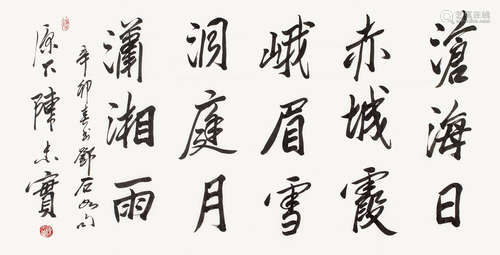 滄海日
赤城霞
峨眉雪
洞庭月
瀟湘雨
辛卯春書鄧石如句
陳志實